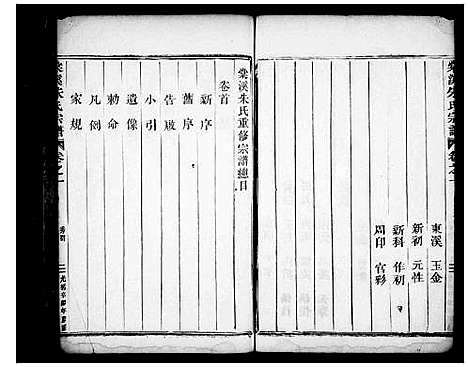 棠溪朱氏宗譜
卷之一
東溪 玉金
新初 元性
新科 作初
周印 官彩
棠溪朱氏重修宗譜總目
卷首
新序
舊序
告啟
小引
遺像
勅命
凡例
家規
棠溪朱氏宗譜
卷之一